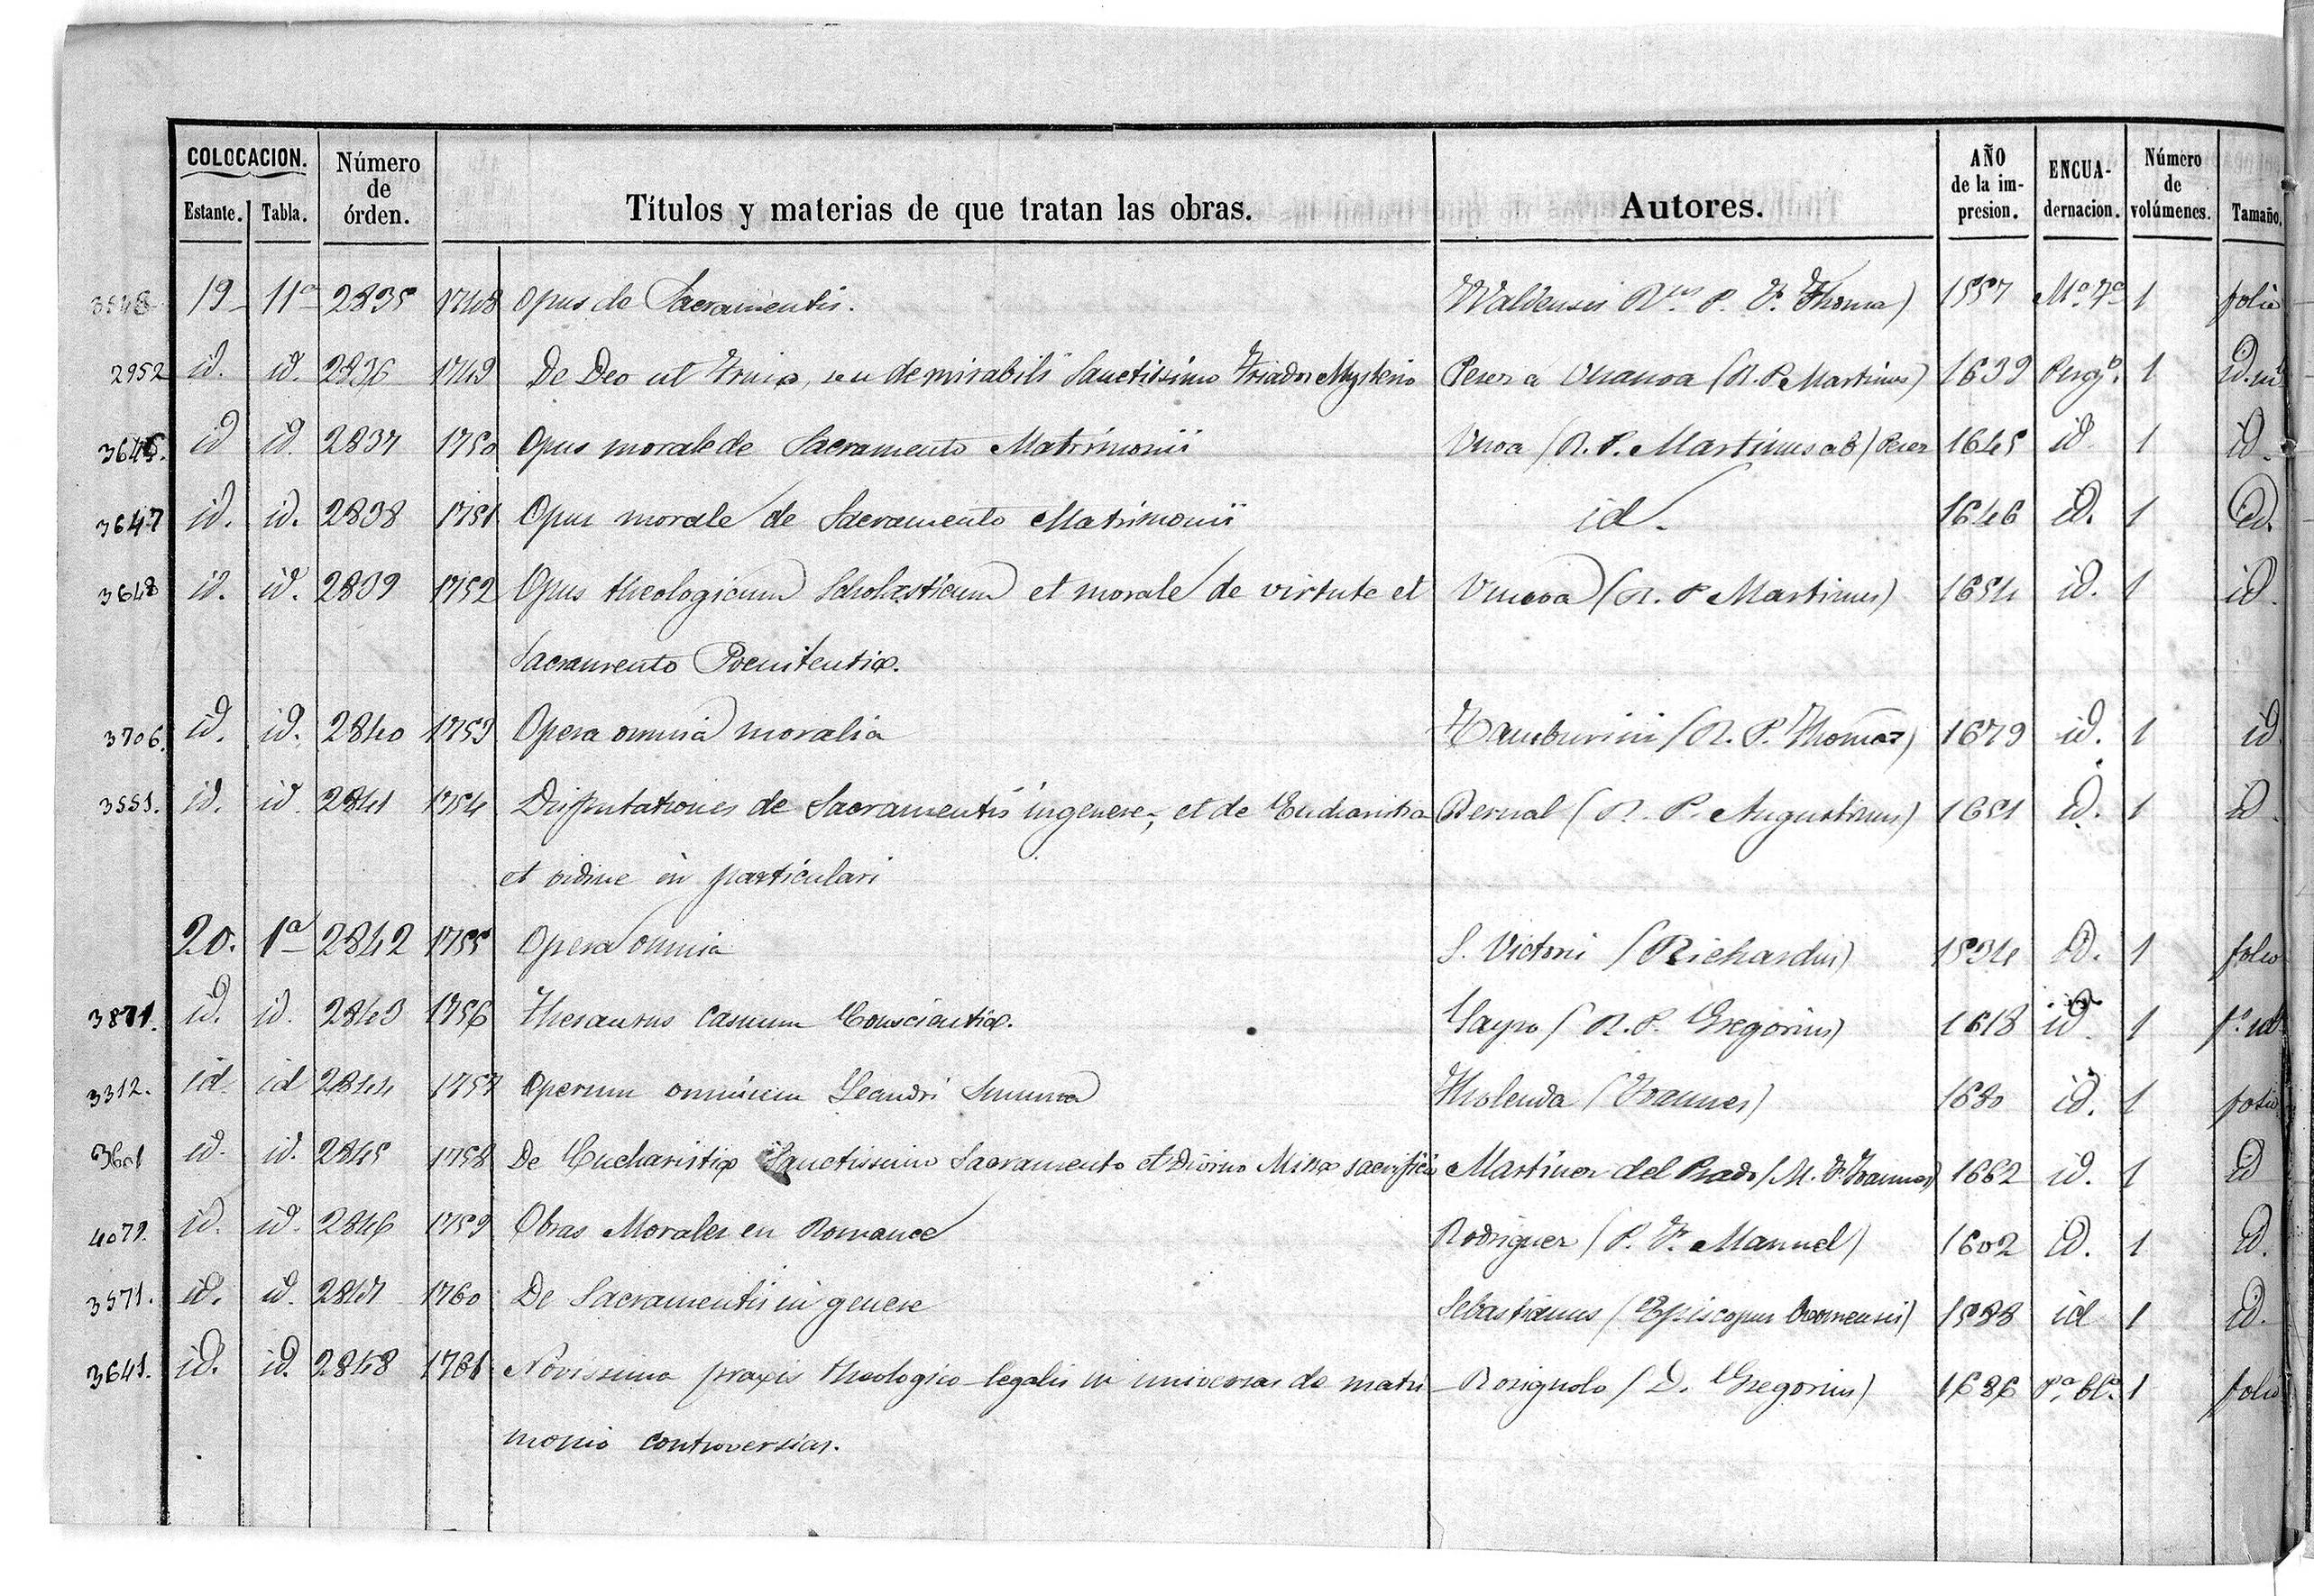 COLOCACION.
Número de órden.
Títulos y materias de que tratan las obras.
Autores.
AÑO de la im-presion.
ENCUA-dernacion.
Número de volúmenes.
Tamaño.
Estante. Tabla.
3548 19 11ª 2835 1748 Opus de Sacramentis. Waldensis P. F. Thoma) 1557 1 folio
2952 id. id. 2836 1749 De Deo ut Trino, seu de mirabili Sanctissimo Triados Mysterio Perez a Unanoa (R. P. Martinus) 1639 Pergº. 1 id.
3646. id id. 2837 1750 Opus morale de Sacramento Matrimonii Unoa (R. P. Martinus ab) Perez 1645 id 1 id.
3647 id. id. 2838 1751 Opus morale de Sacramento Matrimonii id. 1646 id. 1 id.
3648 id. id. 2839 1752 Opus theologicum Scholasticum et morale de virtute et Unanoa (R. P. Martinus) 1654 id. 1 id.
Sacramento Poenitentiæ.
3706. id. id. 2840 1753 Opera omnia moralia Tamburini (R. P. Thomas) 1679 id. 1 id
3551. id. id. 2841 1754 Disputationes de Sacramentis in genere, et de Eucharistia Bernal (R. P. Augustinus) 1651 id. 1 id.
et ordine in particulari
20. 1ª 2842 1755 Opera omnia S. Victoris (Richardus) 1534 id. 1 folio
3871. id. id. 2843 1756 Thesaurus Casuum Conscientiæ. Sayro (R. P. Gregorius) 1618 id 1 fº. id.
3312. id id 2844 1757 Operum omnium Leandri Summa Molenda (Joannes) 1680 id. 1 folio
3601 id. id. 2845 1758 De Eucharistiæ Sanctissimo Sacramento et Divino Missæ sacrificio Martinez del Prado (M. F. Joannes) 1662 id. 1 id
4079. id. id. 2846 1759 Obras Morales en Romance Rodriguez (P. F. Manuel) 1602 id. 1 id.
3571. id. id. 2847 1760 De Sacramentis in genere Sebastianus (Episcopus Oxomensis) 1588 id 1 id.
3641. id. id. 2848 1761 Novissima praxis theologico-legalis in universas de matri- Rosignolo (D. Gregorius) 1686 1 folio
monio controversias.